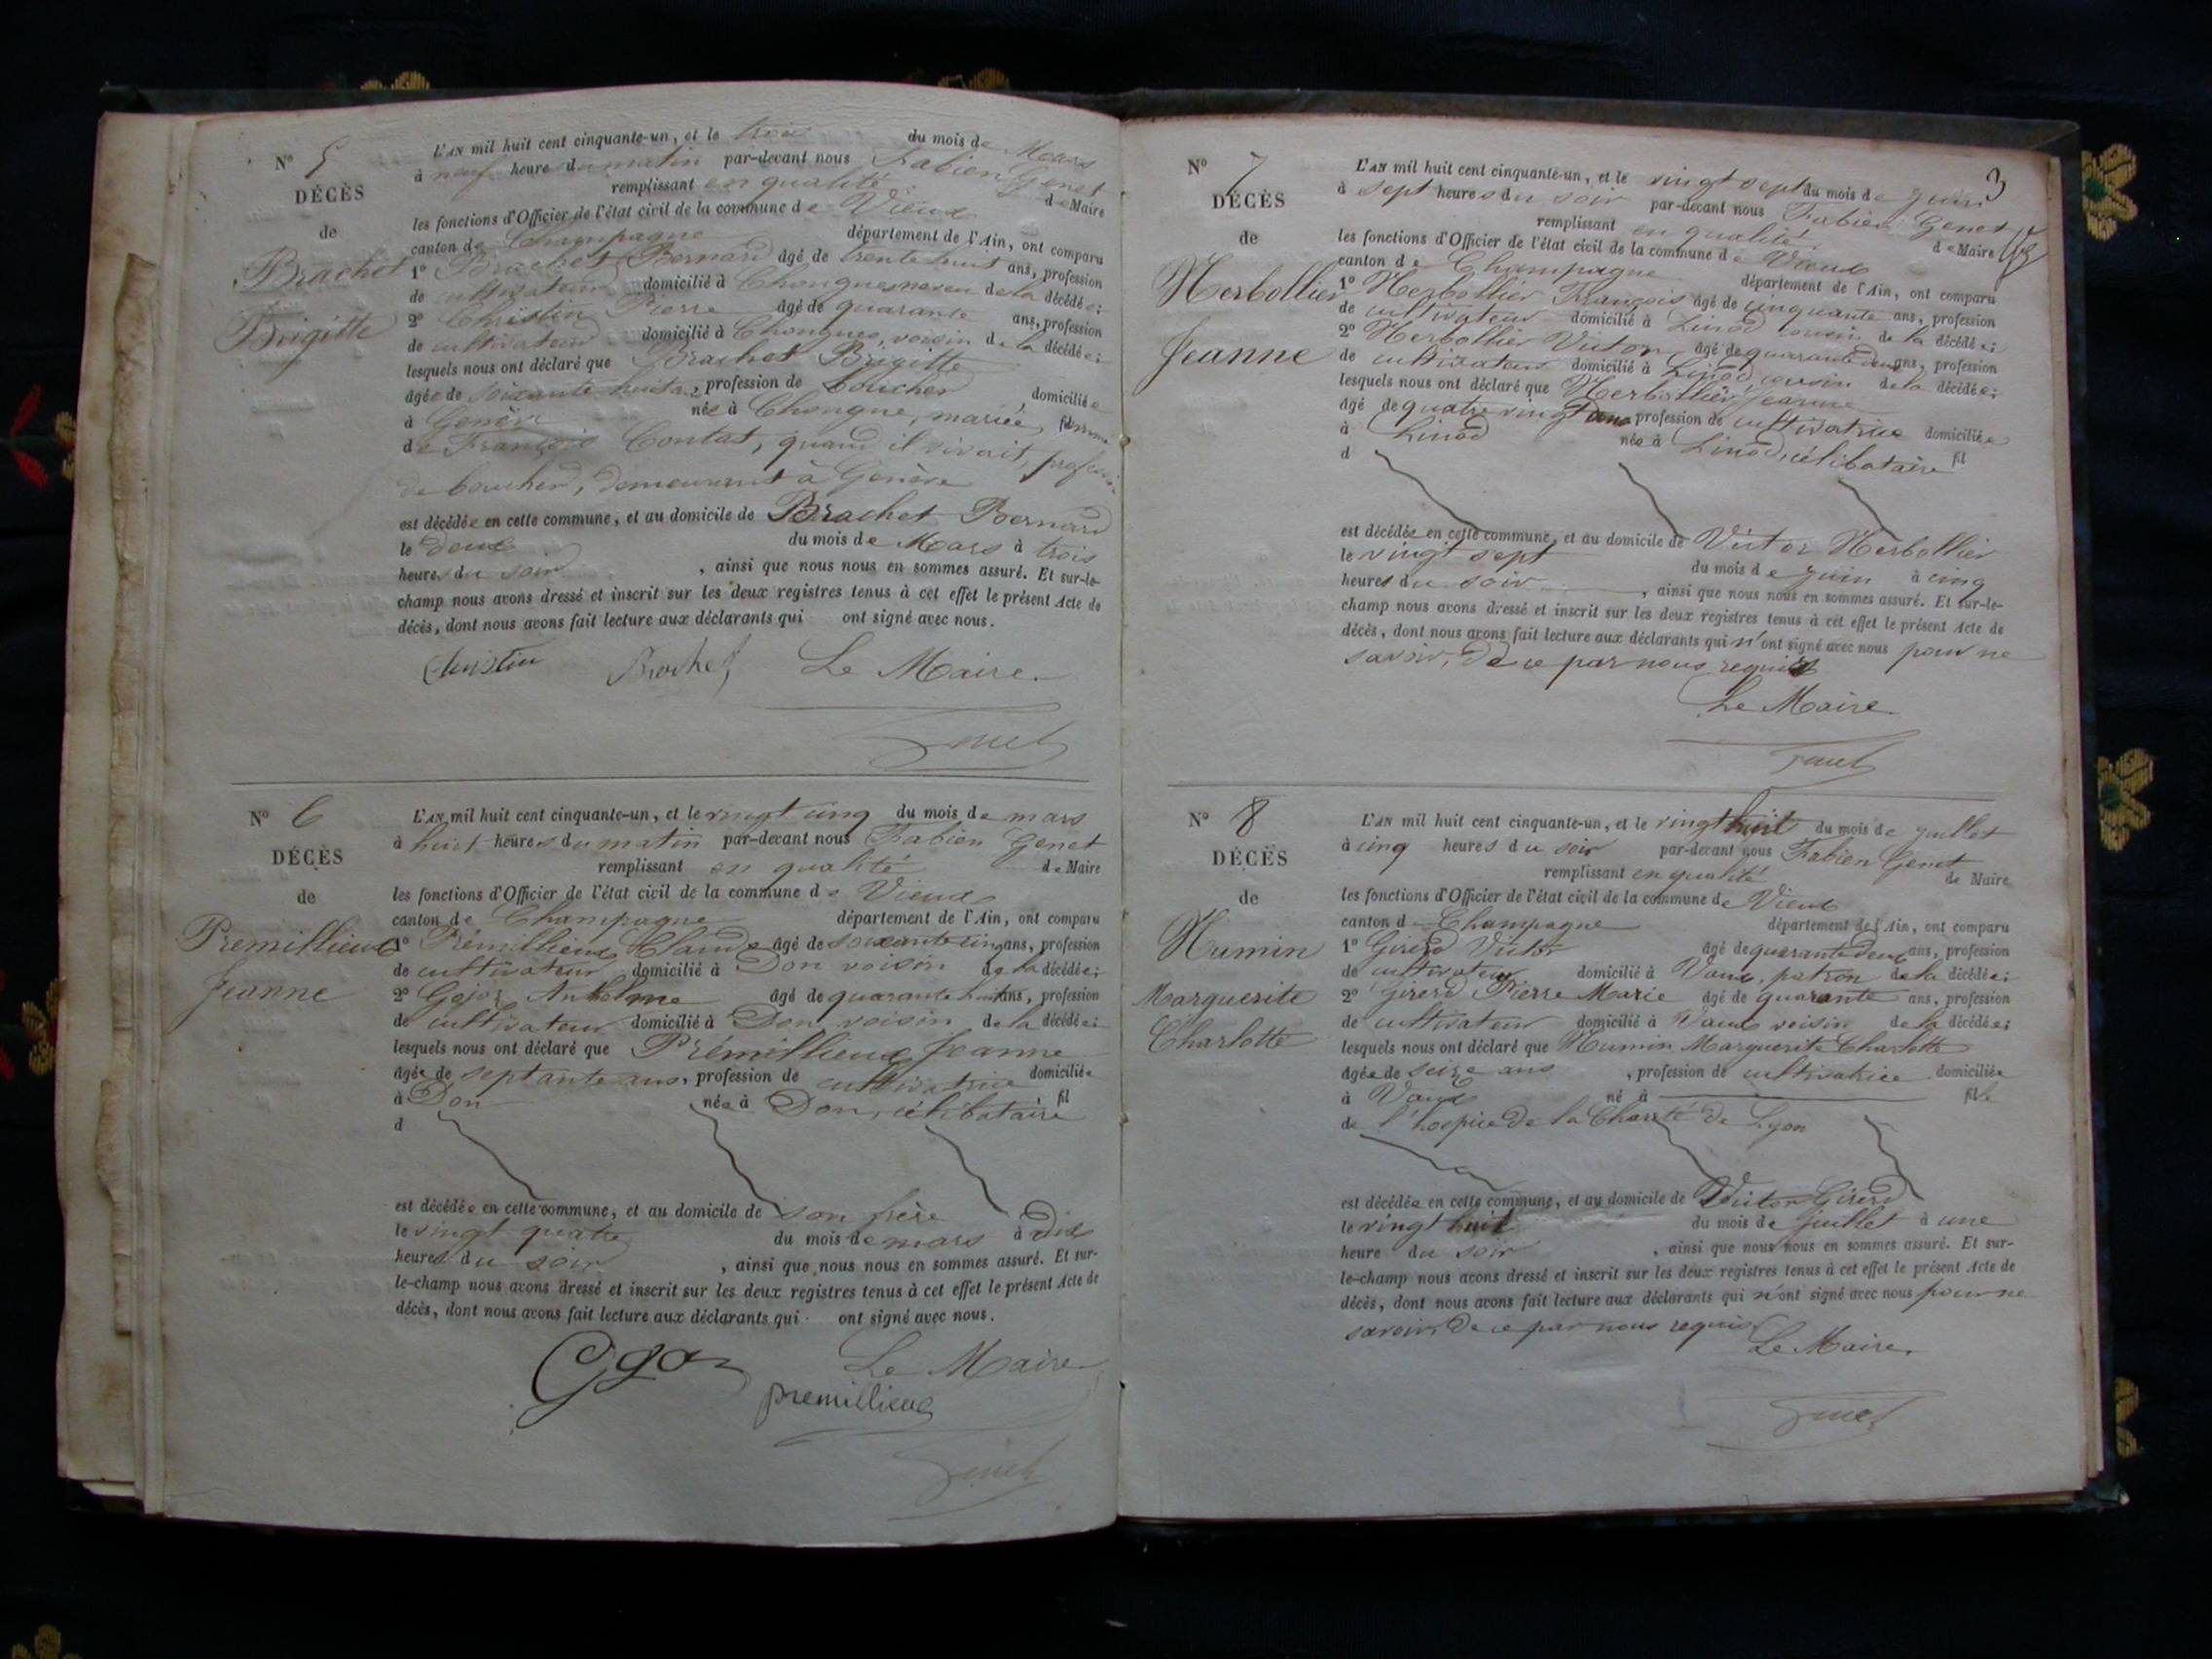 N° 5
DÉCÈS
de
Brachet
Brigitte
L'AN mil huit cent cinquante-un, et le trois du mois de Mars
à neuf heure du matin par-devant nous Fabien Genet
remplissant en qualité de Maire
les fonctions d'Officier de l'état civil de la commune de Vieux
canton de Champagne département de l'Ain, ont comparu
1° Brachet Bernard âgé de trente huit ans, profession
de cultivateur domicilié à Chongnes neveu de la décédée;
2° Christin Pierre âgé de quarante ans, profession
de cultivateur domicilié à Chongnes, voisin de la décédée;
lesquels nous ont déclaré que Brachet Brigitte
âgée de soixante huit a, profession de boucher domiciliée
à Genève née à Chongne, mariée, femme
de François Contat, quand il vivait, profession
de boucher, demeurant à Genève
est décédée en cette commune, et au domicile de Brachet Bernard
le deux du mois de Mars à trois
heures du soir, ainsi que nous nous en sommes assuré. Et sur-le-
champ nous avons dressé et inscrit sur les deux registres tenus à cet effet le présent Acte de
décès, dont nous avons fait lecture aux déclarants qui ont signé avec nous.
Christin Brachet Le Maire.
Genet
N° 6
DÉCÈS
de
Premillieux
Jeanne
L'AN mil huit cent cinquante-un, et le vingt cinq du mois de mars
à huit heures du matin par-devant nous Fabien Genet
remplissant en qualité de Maire
les fonctions d'Officier de l'état civil de la commune de Vieux
canton de Champagne département de l'Ain, ont comparu
1° Prémillieux Claude âgé de soixante cinq ans, profession
de cultivateur domicilié à Don voisin de la décédée;
2° Gojoz Anthelme âgé de quarante huit ans, profession
de cultivateur domicilié à Don, voisin de la décédée;
lesquels nous ont déclaré que Prémillieux Jeanne
âgée de septante ans, profession de cultivatrice domiciliée
à Don née à Don, célibataire fil
d
est décédée en cette commune, et au domicile de son frère
le vingt quatre du mois de mars à dix
heures du soir, ainsi que nous nous en sommes assuré. Et sur-
le-champ nous avons dressé et inscrit sur les deux registres tenus à cet effet le présent Acte de
décès, dont nous avons fait lecture aux déclarants qui ont signé avec nous.
Le Maire
premillieux
Genet
3
N° 7
DÉCÈS
de
Herbollier
Jeanne
L'AN mil huit cent cinquante-un, et le vingt sept du mois de juin
à sept heures du soir par-devant nous Fabien Genet
remplissant en qualité de Maire
les fonctions d'Officier de l'état civil de la commune de Vieux
canton de Champagne département de l'Ain, ont comparu
1° Herbollier François âgé de cinquante ans, profession
de cultivateur domicilié à Linod cousin de la décédée;
2° Herbollier Victor, âgé de quarante deux ans, profession
de cultivateur domicilié à Linod, cousin de la décédée;
lesquels nous ont déclaré que Herbollier Jeanne
âgé de quatre vingt ans profession de cultivatrice domiciliée
à Linod née à Linod, célibataire fil
d
est décédée en cette commune, et au domicile de Victor Herbollier
le vingt sept du mois de juin à cinq
heures du soir, ainsi que nous nous en sommes assuré. Et sur-le-
champ nous avons dressé et inscrit sur les deux registres tenus à cet effet le présent Acte de
décès, dont nous avons fait lecture aux déclarants qui n'ont signé avec nous pour ne
savoir, de ce par nous requis
Le Maire
Genet
N° 8
DÉCÈS
de
Humin
Marguerite
Charlotte
L'AN mil huit cent cinquante-un, et le vingt huit du mois de juillet
à cinq heures du soir par-devant nous Fabien Genet
remplissant en qualité de Maire
les fonctions d'Officier de l'état civil de la commune de Vieux
canton d Champagne département de l'Ain, ont comparu
1° Girerd Victor âgé de quarante deux ans, profession
de cultivateur domicilié à Vaux, patron de la décédée;
2° Girerd Pierre Marie âgé de quarante ans, profession
de cultivateur domicilié à Vaux voisin de la décédée;
lesquels nous ont déclaré que Humin Marguerite Charlotte
âgée de seize ans, profession de cultivatrice domiciliée
à Vaux né à fille
de l'hospice de la Charité de Lyon
est décédée en cette commune, et au domicile de Victor Girerd
le vingt huit du mois de juillet à une
heure du soir, ainsi que nous nous en sommes assuré. Et sur-
le-champ nous avons dressé et inscrit sur les deux registres tenus à cet effet le présent Acte de
décès, dont nous avons fait lecture aux déclarants qui n'ont signé avec nous pour ne
savoir, de ce par nous requis
Le Maire.
Genet